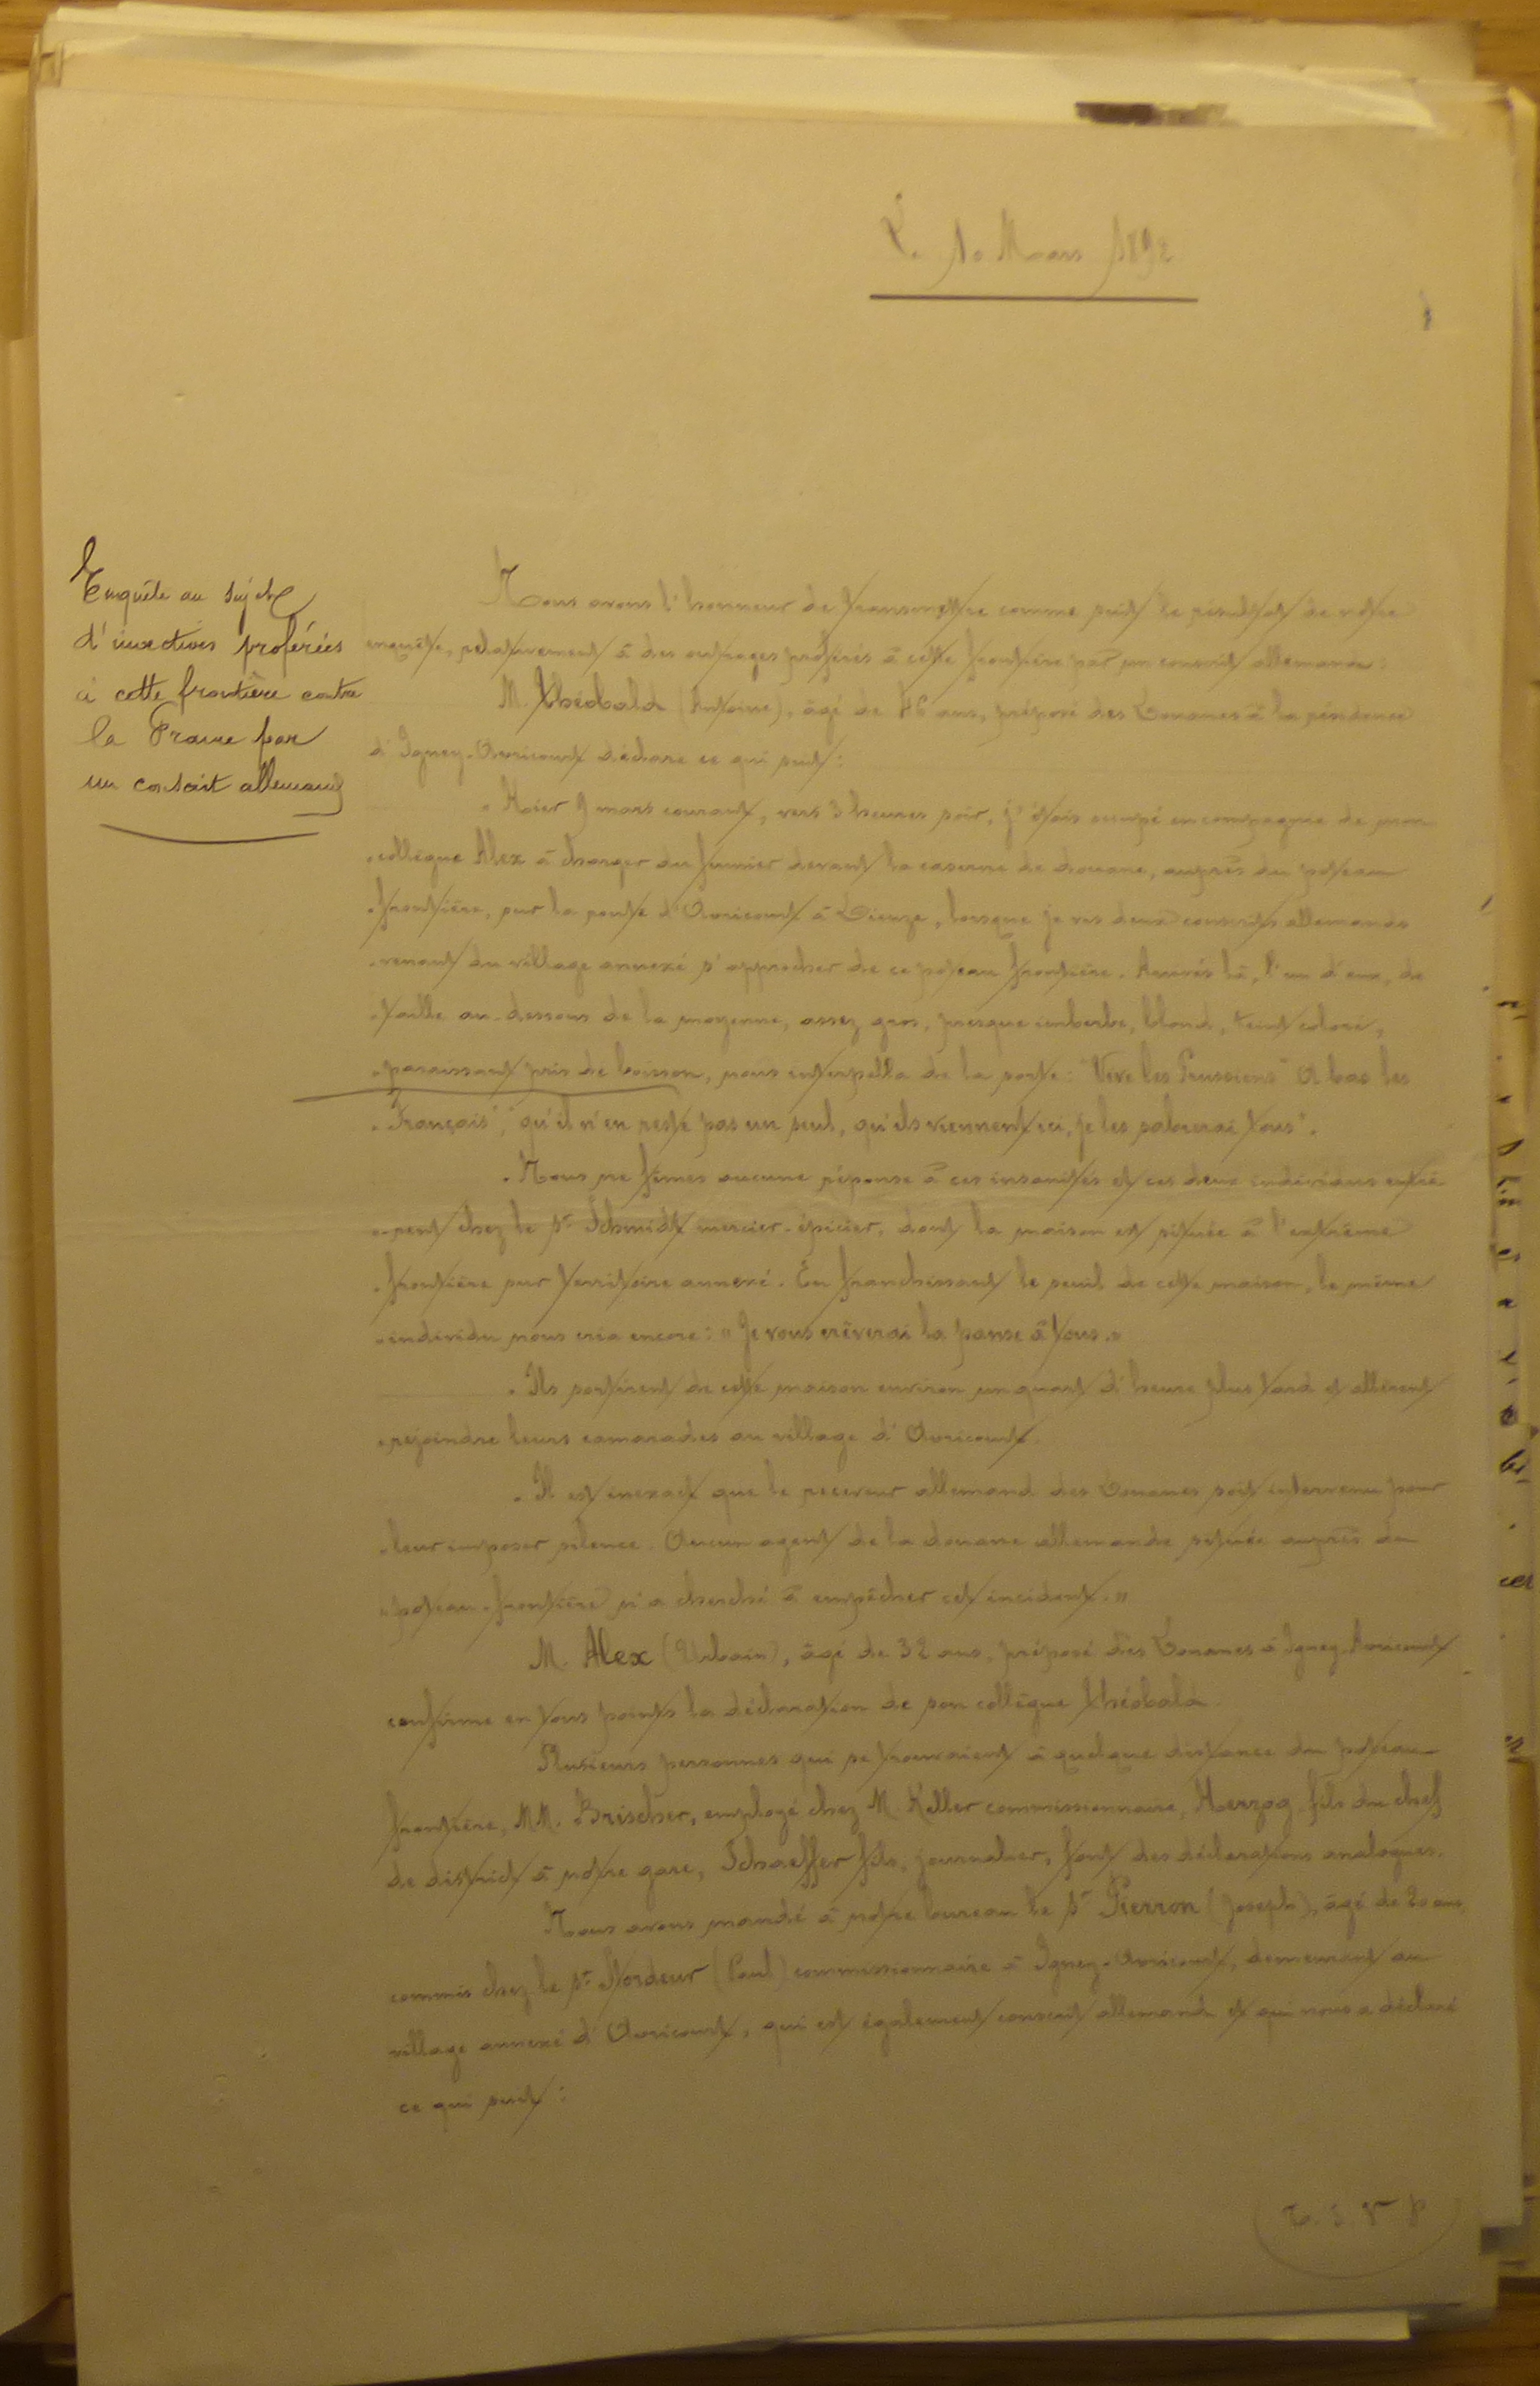 Le 10 Mars 1892
Enquête au sujet
d'invectives proférées
à cette frontière contre
la France par
un conscrit allemand
Nous avons l'honneur de transmettre comme suit le résultat de notre
enquête, relativement à des outrages proférés à cette frontière par un conscrit allemand :
M. Théobald (Antoine), âgé de 46 ans, préposé des Douanes à la résidence
d'Igney-Avricourt déclare ce qui suit :
"Hier 9 mars courant, vers 3 heures soir, j'étais occupé en compagnie de mon
"collègue Alex à charger du fumier devant la caserne de douane, auprès du poteau
"frontière, sur la route d'Avricourt à Dieuze, lorsque je vis deux conscrits allemands
"venant du village annexé s'approcher de ce poteau frontière. Arrivés là, l'un d'eux, de
"taille au-dessous de la moyenne, assez gros, presque imberbe, blond, teint coloré,
"paraissant pris de boisson, nous interpella de la sorte : "Vive les Prussiens" "A bas les
"Français", "qu'il n'en reste pas un seul, qu'ils viennent ici, je les sabrerai tous".
"Nous ne fîmes aucune réponse à ces insanités et ces deux individus entrè-
"rent chez le Sr Schmidt mercier-épicier, dont la maison est située à l'extrême
"frontière sur territoire annexé. En franchissant le seuil de cette maison, le même
"individu nous cria encore : "Je vous crèverai la panse à tous."
"Ils sortirent de cette maison environ un quart d'heure plus tard et allèrent
"rejoindre leurs camarades au village d'Avricourt.
"Il est inexact que le receveur allemand des Douanes soit intervenu pour
"leur imposer silence. Aucun agent de la douane allemande située auprès du
"poteau-frontière n'a cherché à empêcher cet incident."
M. Alex (Urbain), âgé de 32 ans, préposé des Douanes à Igney-Avricourt
confirme en tous points la déclaration de son collègue Théobald.
Plusieurs personnes qui se trouvaient à quelque distance du poteau-
frontière, MM. Brischer, employé chez M. Keller commissionnaire, Herzog fils du chef
de district à notre gare, Schaeffer fils, journalier, font des déclarations analogues.
Nous avons mandé à notre bureau le Sr Pierron (Joseph), âgé de 20 ans,
commis chez le Sr Stordeur (Paul) commissionnaire à Igney-Avricourt, demeurant au
village annexé d'Avricourt, qui est également conscrit allemand et qui nous a déclaré
ce qui suit :